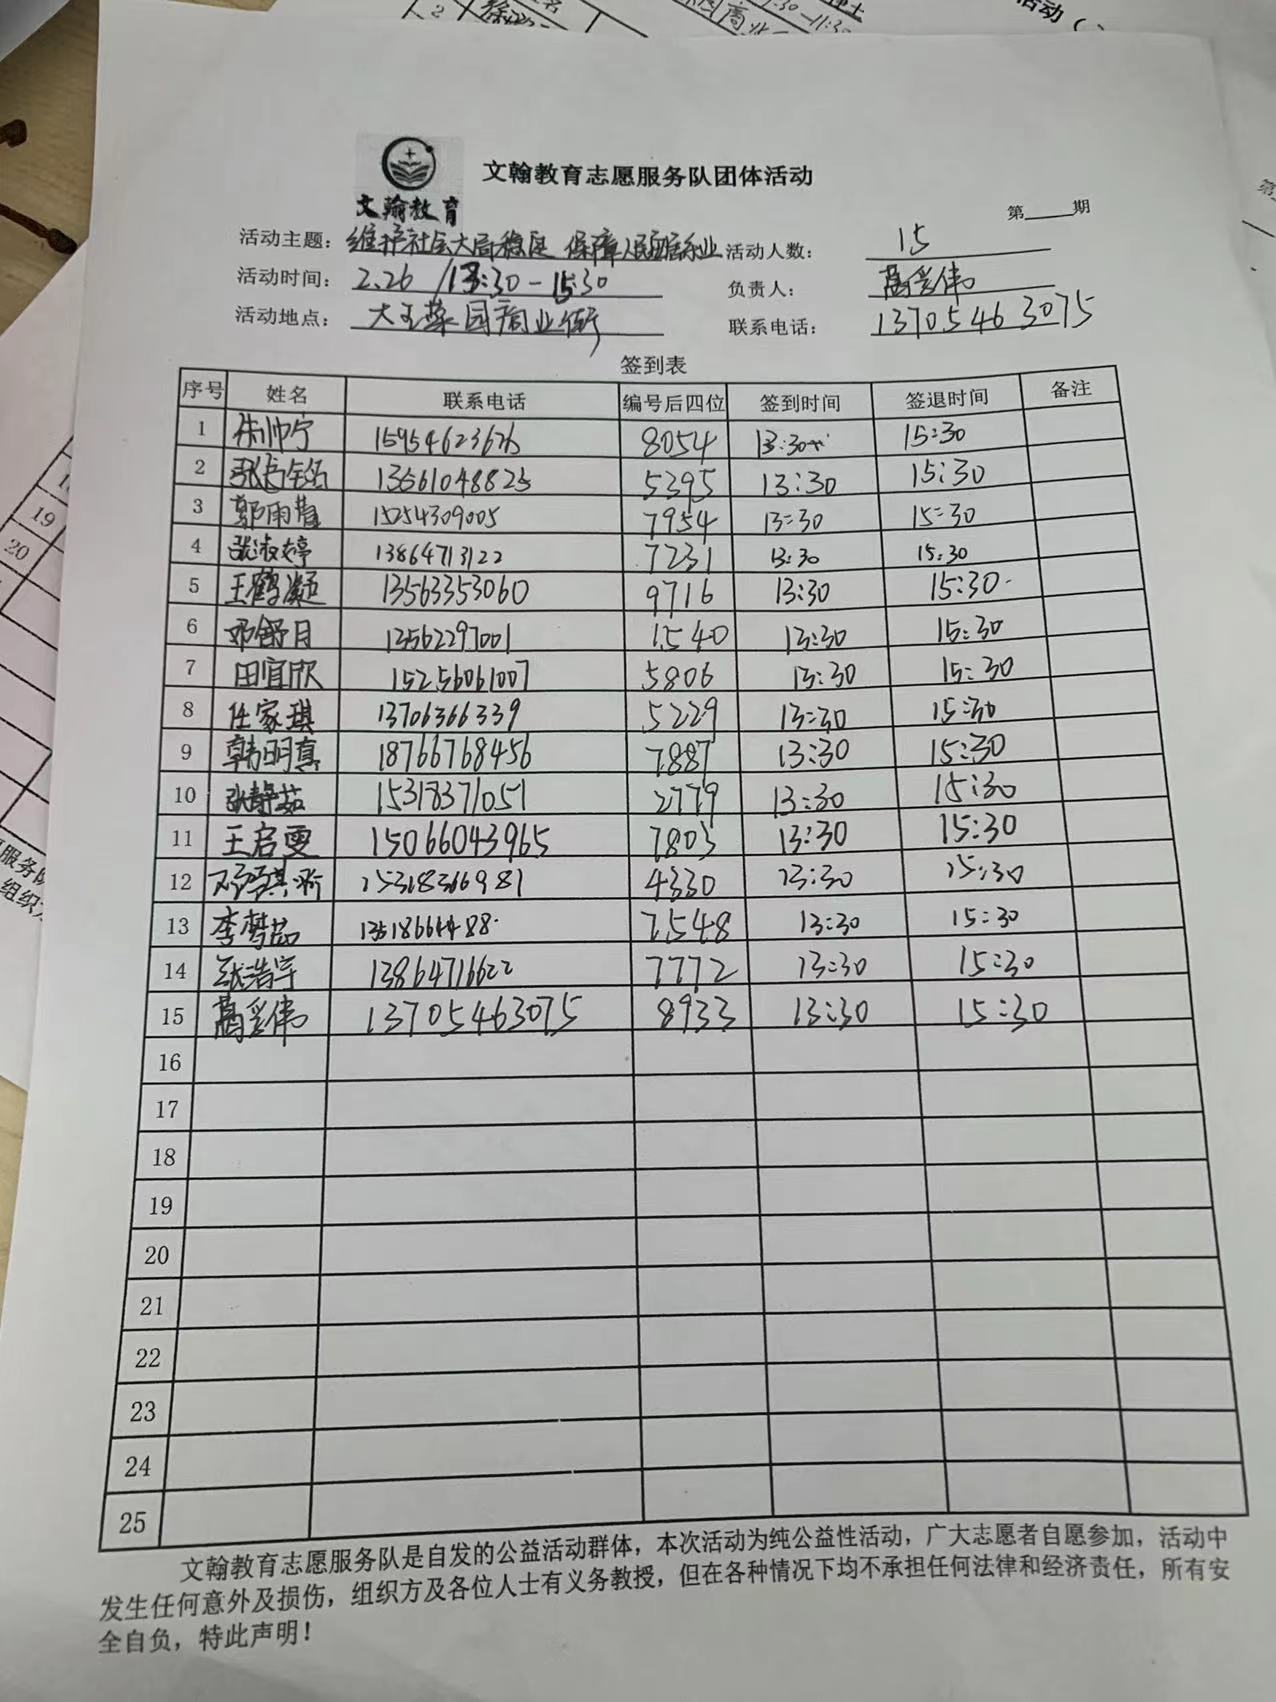 文翰教育
文翰教育志愿服务队团体活动
第____期
活动主题：维护社会大局稳定 保障人民安居乐业 活动人数：15
活动时间：2.26 /13:30-15:30 负责人：
活动地点：大王菜园商业街 联系电话：13705463075
签到表
序号 姓名 联系电话 编号后四位 签到时间 签退时间 备注
1 朱帅宁 8054 13:30 15:30
2 5395 13:30 15:30
3 郭雨菁 15254309005 7954 13:30 15:30
4 张淑婷 13864713122 7231 13:30 15:30
5 王鹤凝 13563353060 9716 13:30 15:30
6 邓舒月 13562297001 1540 13:30 15:30
7 田宜欣 15256061007 5806 13:30 15:30
8 任家琪 13706366339 5229 13:30 15:30
9 韩明真 18766768456 7887 13:30 15:30
10 张静茹 15318371051 2779 13:30 15:30
11 王启雯 15066043965 7805 13:30 15:30
12 15318366981 4330 13:30 15:30
13 李梦茹 7548 13:30 15:30
14 张浩宇 13864716622 7772 13:30 15:30
15 13705463075 8933 13:30 15:30
16
17
18
19
20
21
22
23
24
25
文翰教育志愿服务队是自发的公益活动群体，本次活动为纯公益性活动，广大志愿者自愿参加，活动中
发生任何意外及损伤，组织方及各位人士有义务教授，但在各种情况下均不承担任何法律和经济责任，所有安
全自负，特此声明！